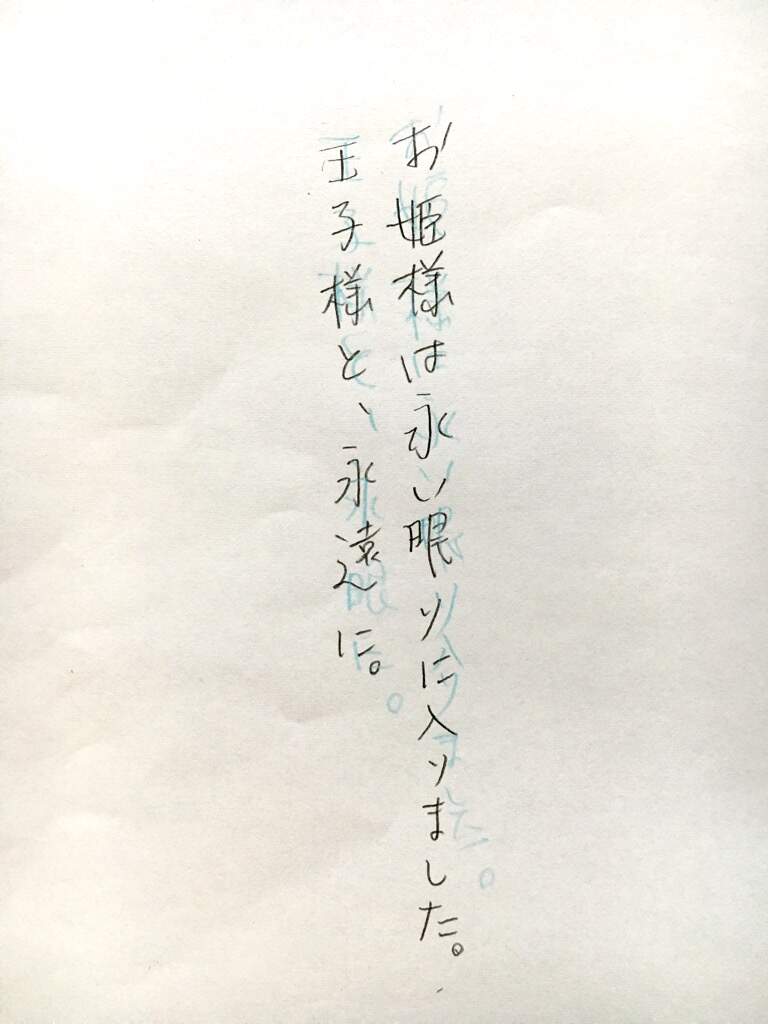 お姫様は永い眠りに入りました。
王子様と、永遠に。